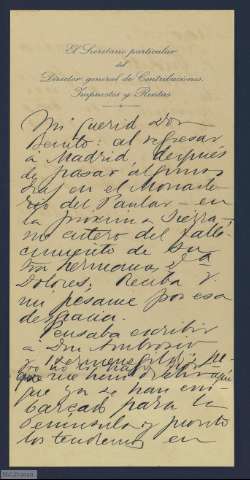 El Secretario particular
del
Director general de Contribuciones,
Impuestos y Rentas
Mi querido Don
Benito: al regresar
a Madrid, después
de pasar algunos
días en el Monaste
rio del Paular – en
la próxima Sierra,
me entero del falle
cimiento de su
hermana, Dª
Dolores, Reciba V
mi pésame por esa
desgracia.
Pensaba escribir
a Don Ambrosio
y Hermenegildo, pe
ro no lo hago
que ya se han em
barcado para la
Península y pronto
los tendremos en